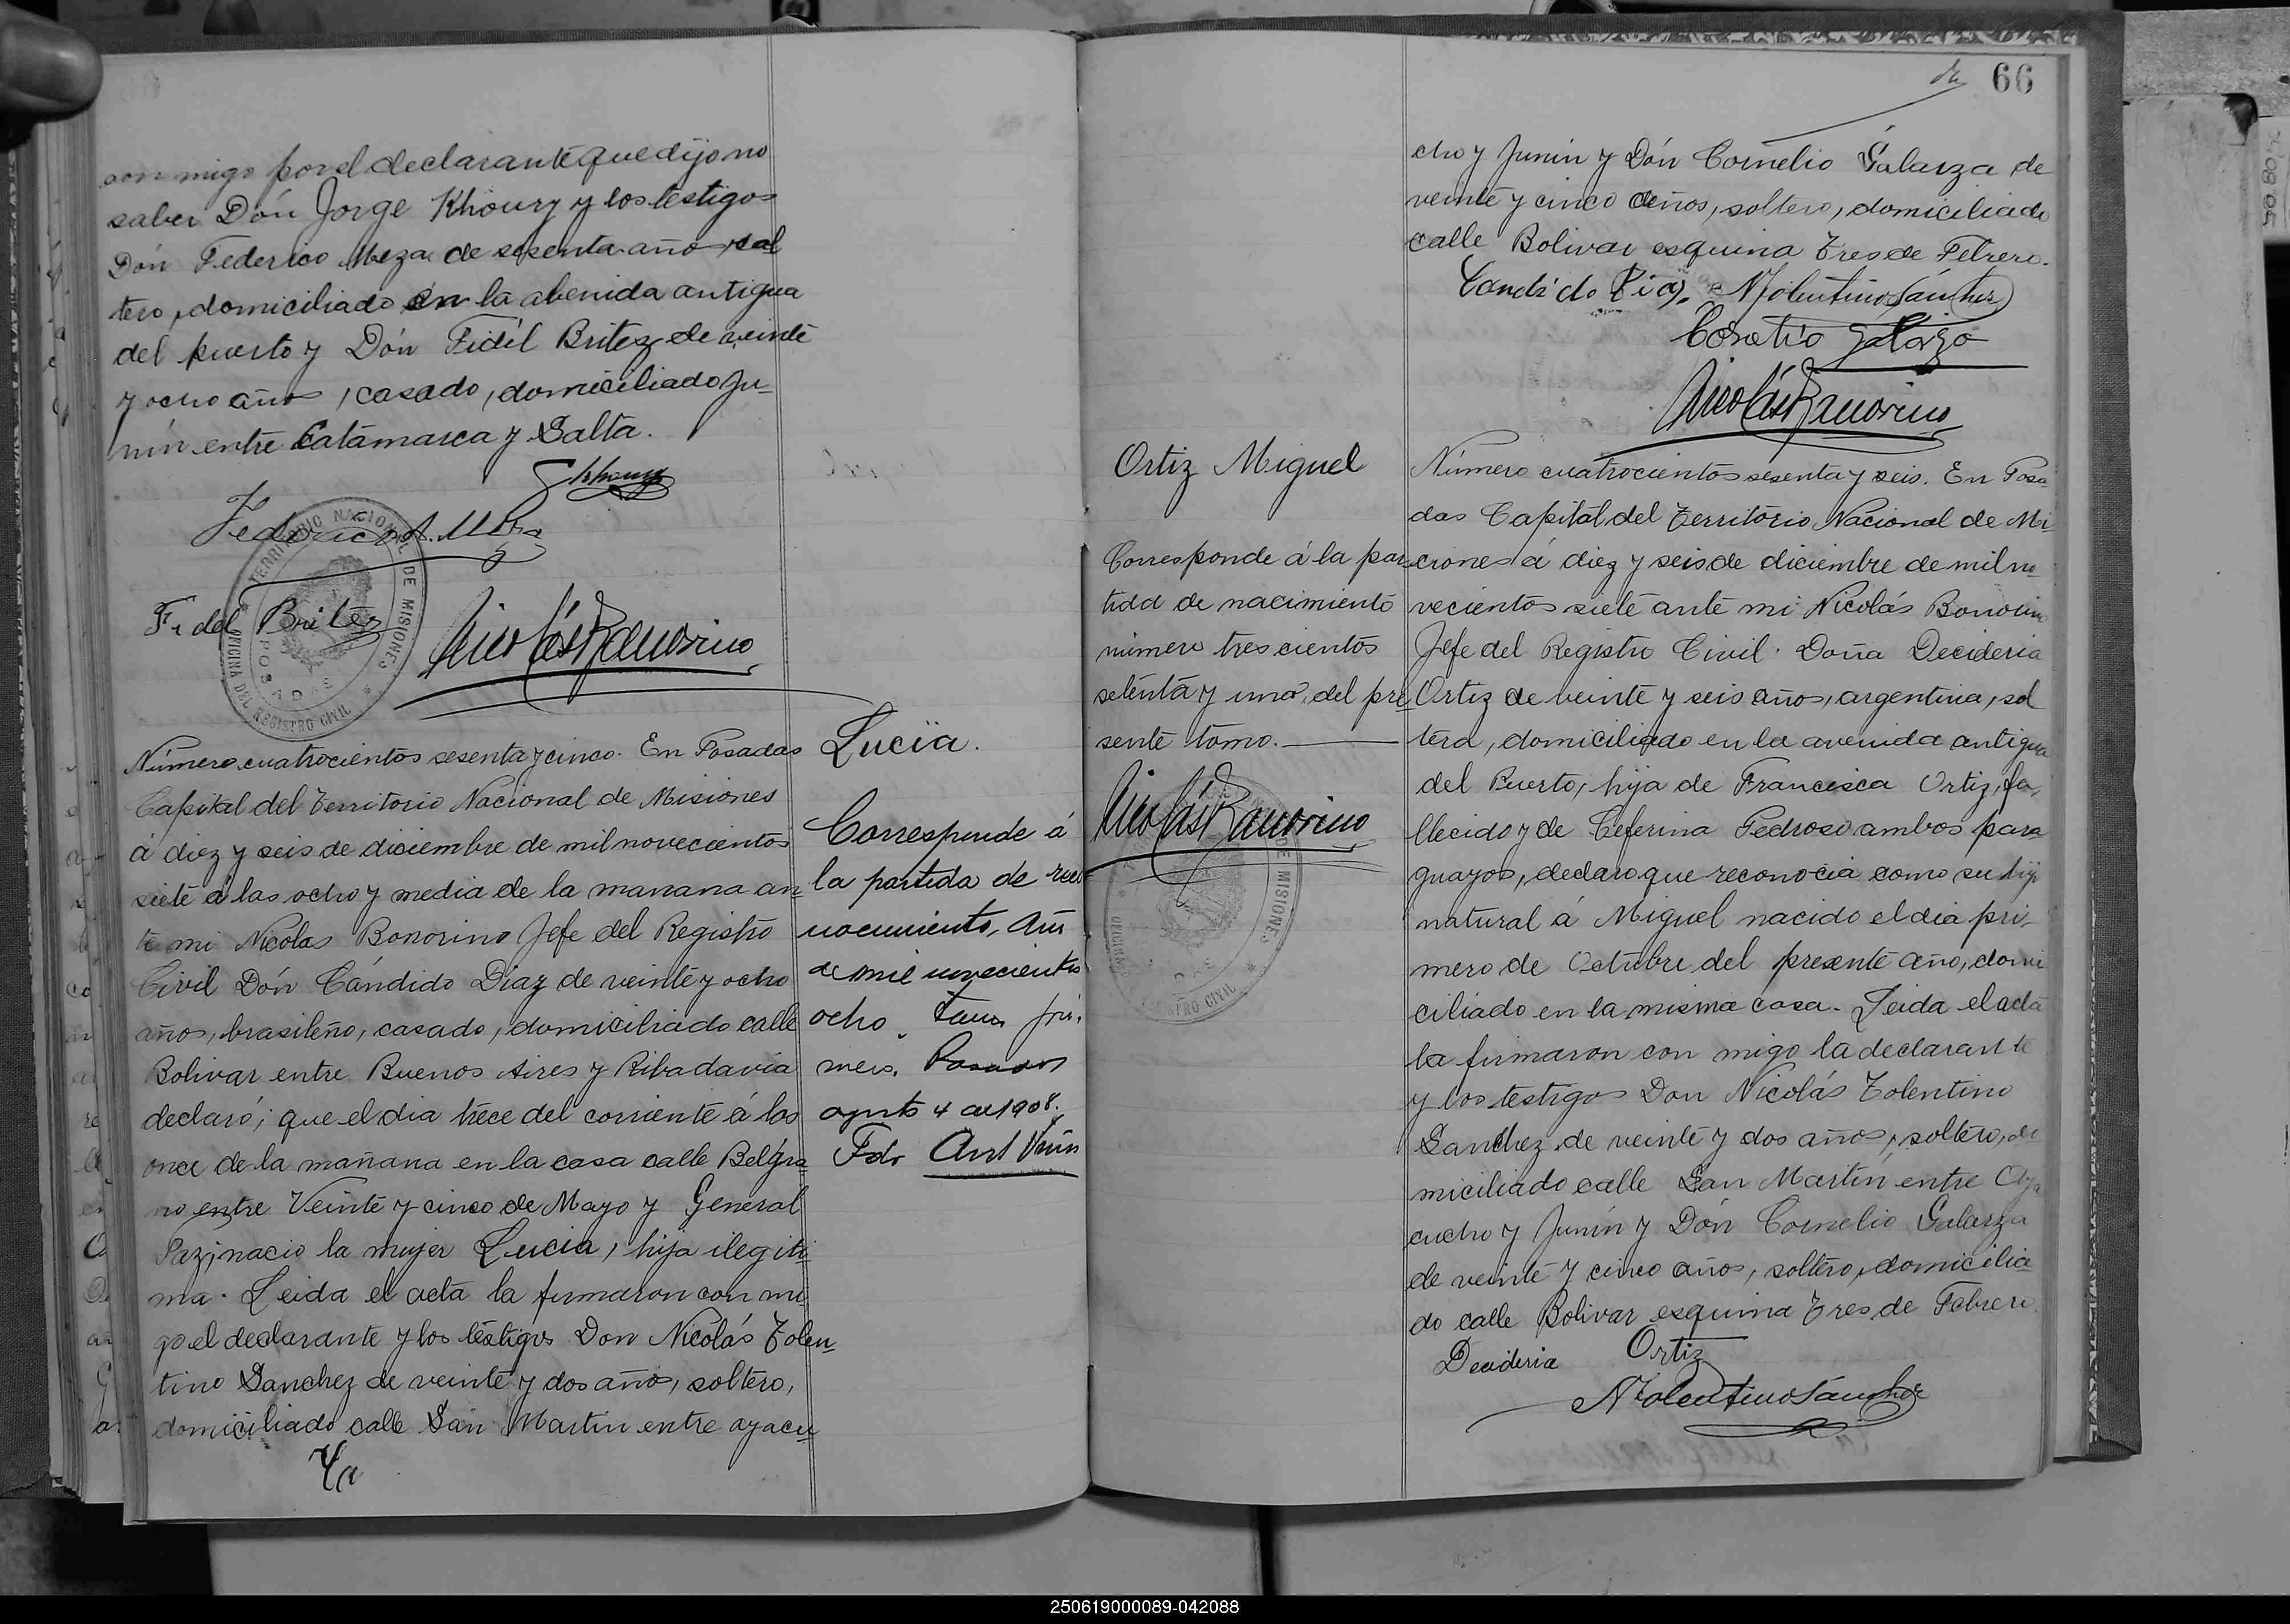 con migo por el declarante que dijo no
saber Dón Jorge Khoury y los testigos
Dón Federico Meza de sesenta años, sol
tero, domiciliado en la abenida antigua
del puerto y Dón Fidél Britez de veinte
y ocho años, casado, domiciliado Ju-
nin entre Catamarca y Salta.
Federico A. Meza
Fidel Britez
Nicolás Bonorino
TERRITORIO NACIONAL DE MISIONES
POSADAS
OFICINA DEL REGISTRO CIVIL
Número cuatrocientos sesenta y cinco. En Posadas
Capital del Territorio Nacional de Misiones
á diez y seis de diciembre de mil novecientos
siete á las ocho y media de la manana an
te mi Nicolas Bonorino Jefe del Registro
Civil Dón Cándido Diaz de veinte y ocho
años, brasileño, casado, domiciliado calle
Bolivar entre Buenos Aires y Ribadavia
declaró; que el dia trece del corriente á las
once de la mañana en la casa calle Belgra
no entre Veinte y cinco de Mayo y General
Paz, nacio la mujer Lucia, hija ilegiti
ma. Leida el acta la firmaron con mi
go el declarante y los testigos Don Nicolás Tolen-
tino Sanchez de veinte y dos años, soltero,
domiciliado calle San Martin entre ayacu
Lucia.
Corresponde á
la partida de reco
nocimiento, año
de mil novecientos
ocho. Tomo pri-
mero. Posadas
agosto 4 de 1908.
Fdo
66
cho y Junin y Dón Cornelio Galarza de
veinte y cinco años, soltero, domiciliado
calle Bolivar esquina Tres de Febrero.
Candido Diaz. NTolentino Sánchez
Cornelio Galarza
Nicolás Bonorino
Ortiz Miguel
Corresponde á la par
tida de nacimiento
número tres cientos
setenta y uno, del pre
sente tomo.
Nicolás Bonorino
DE MISIONES
REGISTRO CIVIL
Número cuatrocientos sesenta y seis. En Posa
das Capital del Territorio Nacional de Mi
ciones á diez y seis de diciembre de mil no
vecientos siete ante mi Nicolás Bonorino
Jefe del Registro Civil. Doña Decideria
Ortiz de veinte y seis años, argentina, sol
tera, domiciliado en la avenida antigua
del Puerto, hija de Francisca Ortiz, fa,
llecido y de Ceferina Pedroso ambos para
guayos, declaro que reconocia como su hijo
natural á Miguel nacido el dia pri-
mero de Octubre del presente año, domi
ciliado en la misma casa. Leida el acta
la firmaron con migo la declarante
y los testigos Don Nicolás Tolentino
Sanchez de veinte y dos años, soltero, do
miciliado calle San Martin entre Aya
cucho y Junín y Dón Cornelio Galarza
de veinte y cinco años, soltero, domicilia
do calle Bolivar esquina Tres de Febrero.
Decideria Ortiz
NTolentino Sánchez
250619000089-042088